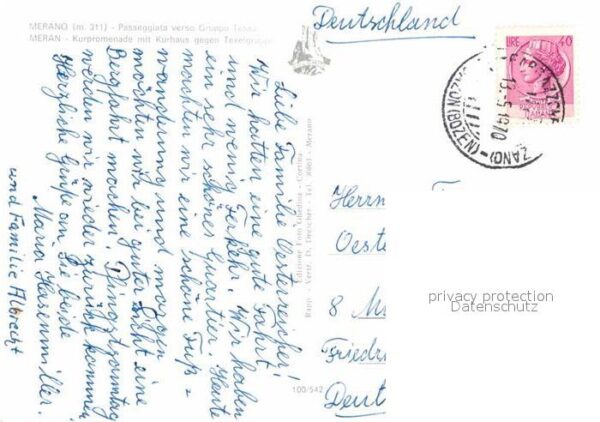 MERANO (m. 311) - Passeggiata verso Gruppo Tessa
MERAN - Kurpromenade mit Kurhaus gegen Texelgruppe
Liebe Familie Oesterreicher!
Wir hatten eine gute Fahrt
und wenig Verkehr. Wir haben
ein sehr schönes Quartier. Heute
machten wir eine schöne Fuß-
wanderung und morgen
möchten wir bei guter Sicht eine
Bergfahrt machen. Pfingstsonntag
werden wir wieder zurück kommen
Herzliche Grüße an Sie beide
Maria Hasenmiller.
und Familie Albrecht
Edizione Foto Ghedina - Cortina
Rapp. - Vertr. D. Drescher - Tel. 30063 - Merano
100/542
Deutschland
LIRE 40
13.5.1970
BOZEN (BOZEN)
Herrn
Oeste
8 M
Friedr
Deut
privacy protection
Datenschutz